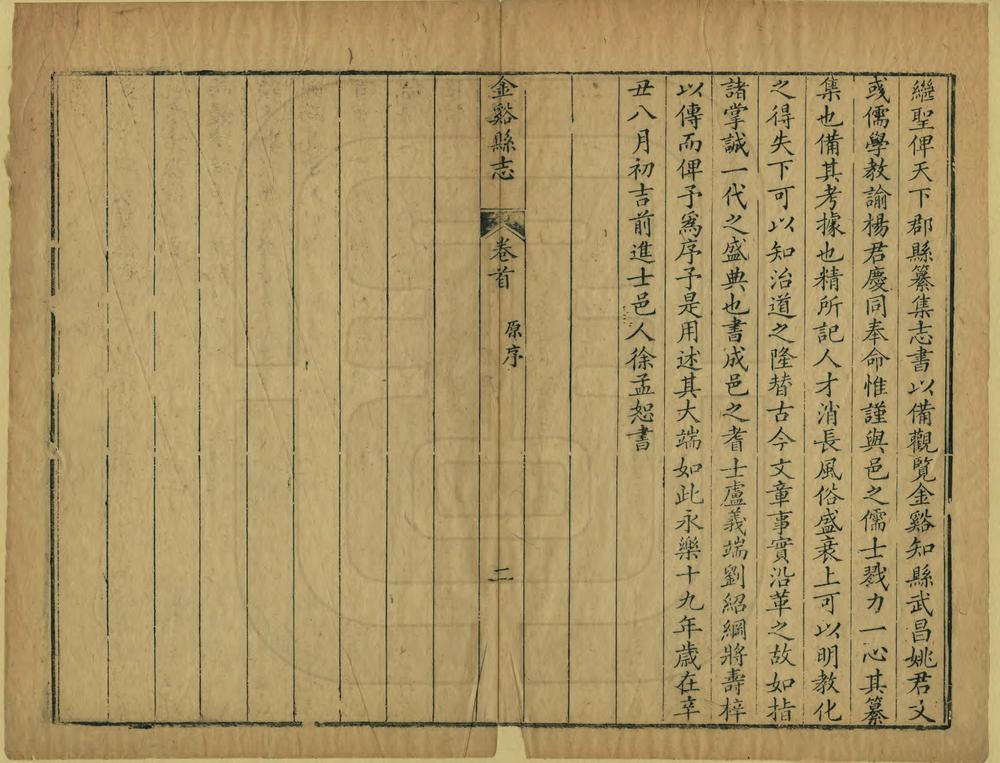 繼聖俾天下郡縣纂集志書以備觀覽金谿知縣武昌姚君文
彧儒學教諭楊君慶同奉命惟謹與邑之儒士戮力一心其纂
集也備其考據也精所記人才消長風俗盛衰上可以明教化
之得失下可以知治道之隆替古今文章事實沿革之故如指
諸掌誠一代之盛典也書成邑之耆士盧義端劉紹綱將壽梓
以傳而俾予為序予是用述其大端如此永樂十九年歲在辛
丑八月初吉前進士邑人徐孟恕書
金谿縣志
卷首
原序
二